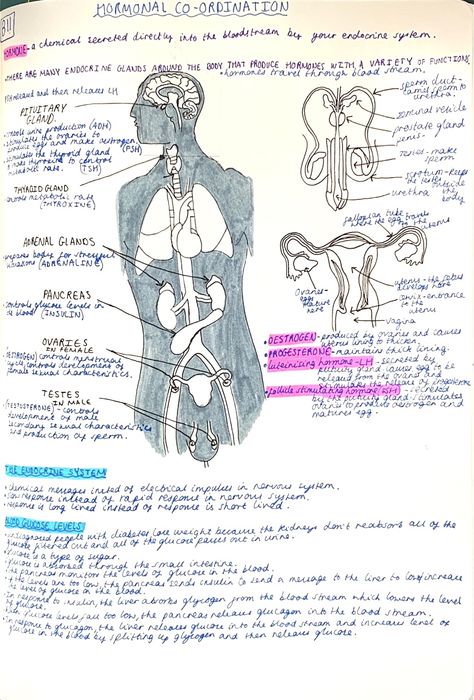 HORMONAL CO-ORDINATION
B11
HORMONE - a chemical secreted directly into the bloodstream by your endocrine system.
THERE ARE MANY ENDOCRINE GLANDS AROUND THE BODY THAT PRODUCE HORMONES WITH A VARIETY OF FUNCTIONS
• hormones travel through blood stream.
FSH released and then releases LH
PITUITARY
GLAND.
urine production (ADH)
stimulates the ovaries to
produce eggs and make oestrogen
(FSH)
stimulates the thyroid gland
to make thyroxine to control
metabolic rate.
(TSH)
THYROID GLAND
controls metabolic rate
(THYROXINE)
ADRENAL GLANDS
prepares body for stressful
situations (ADRENALINE)
PANCREAS
controls glucose levels in
the blood (INSULIN)
OVARIES
IN FEMALE
(OESTROGEN) controls menstrual
cycle, controls development of
female sexual characteristics.
TESTES
IN MALE
(TESTOSTERONE) - controls
development of male
secondary sexual characteristics
and production of sperm.
sperm duct -
sperm to
urethra.
seminal vesicle
prostate gland
penis -
testes - make
sperm
scrotum - keeps
the testes
outside
the body
urethra
fallopian tube
where the egg
to the uterus
Ovaries -
eggs
mature
here
uterus - the fetus
develops here
cervix - entrance
to the
uterus
vagina
• OESTROGEN - produced by ovaries and causes
uterus lining to thicken.
• PROGESTERONE - maintains thick lining.
luteinising hormone - LH - secreted by
pituitary gland causes egg to be
released from the ovary and
stimulates the release of
follicle stimulating hormone (FSH) - is secreted
by the pituitary gland / stimulates
ovaries to produce oestrogen and
mature egg.
THE ENDOCRINE SYSTEM
• Chemical messages instead of electrical impulses in nervous system.
• slow response instead of rapid response in nervous system.
• response is long lived instead of response is short lived.
BLOOD GLUCOSE LEVELS
• undiagnosed people with diabetes lose weight because the kidneys don't reabsorb all of the
glucose filtered out and all of the glucose passes out in urine.
• Glucose is a type of sugar.
• Glucose is absorbed through the small intestine.
• The pancreas monitors the levels of glucose in the blood.
• If the levels are too low, the pancreas sends insulin to send a message to the liver to low/increase
the levels of glucose in the blood.
• In response to insulin, the liver absorbs glycogen from the blood stream which lowers the level
of glucose.
• When glucose levels fall too low, the pancreas releases glucagon into the blood stream.
• In response to glucagon, the liver releases glucose into the blood stream and increases level of
glucose in the blood by splitting up glycogen and then releases glucose.